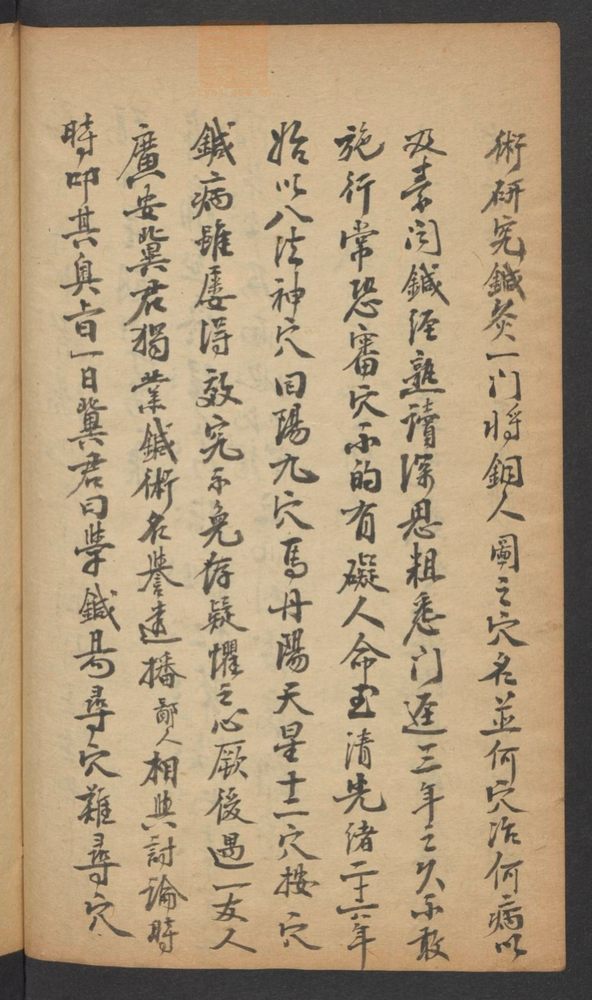 術研究鍼灸一门將銅人圖之穴名並何穴治何病以
及素问鍼經熟讀深思粗悉门逕三年之久不敢
施行常恐審穴不的有礙人命至清光緒二十六年
始以八法神穴回陽九穴馬丹陽天星十二穴按穴
鍼病雖屡得效究不免存疑懼之心厥後遇一友人
廣安冀君獨業鍼術名譽遠播鄙人相與討論時
時叩其奥旨一日冀君曰學鍼易尋穴難尋穴